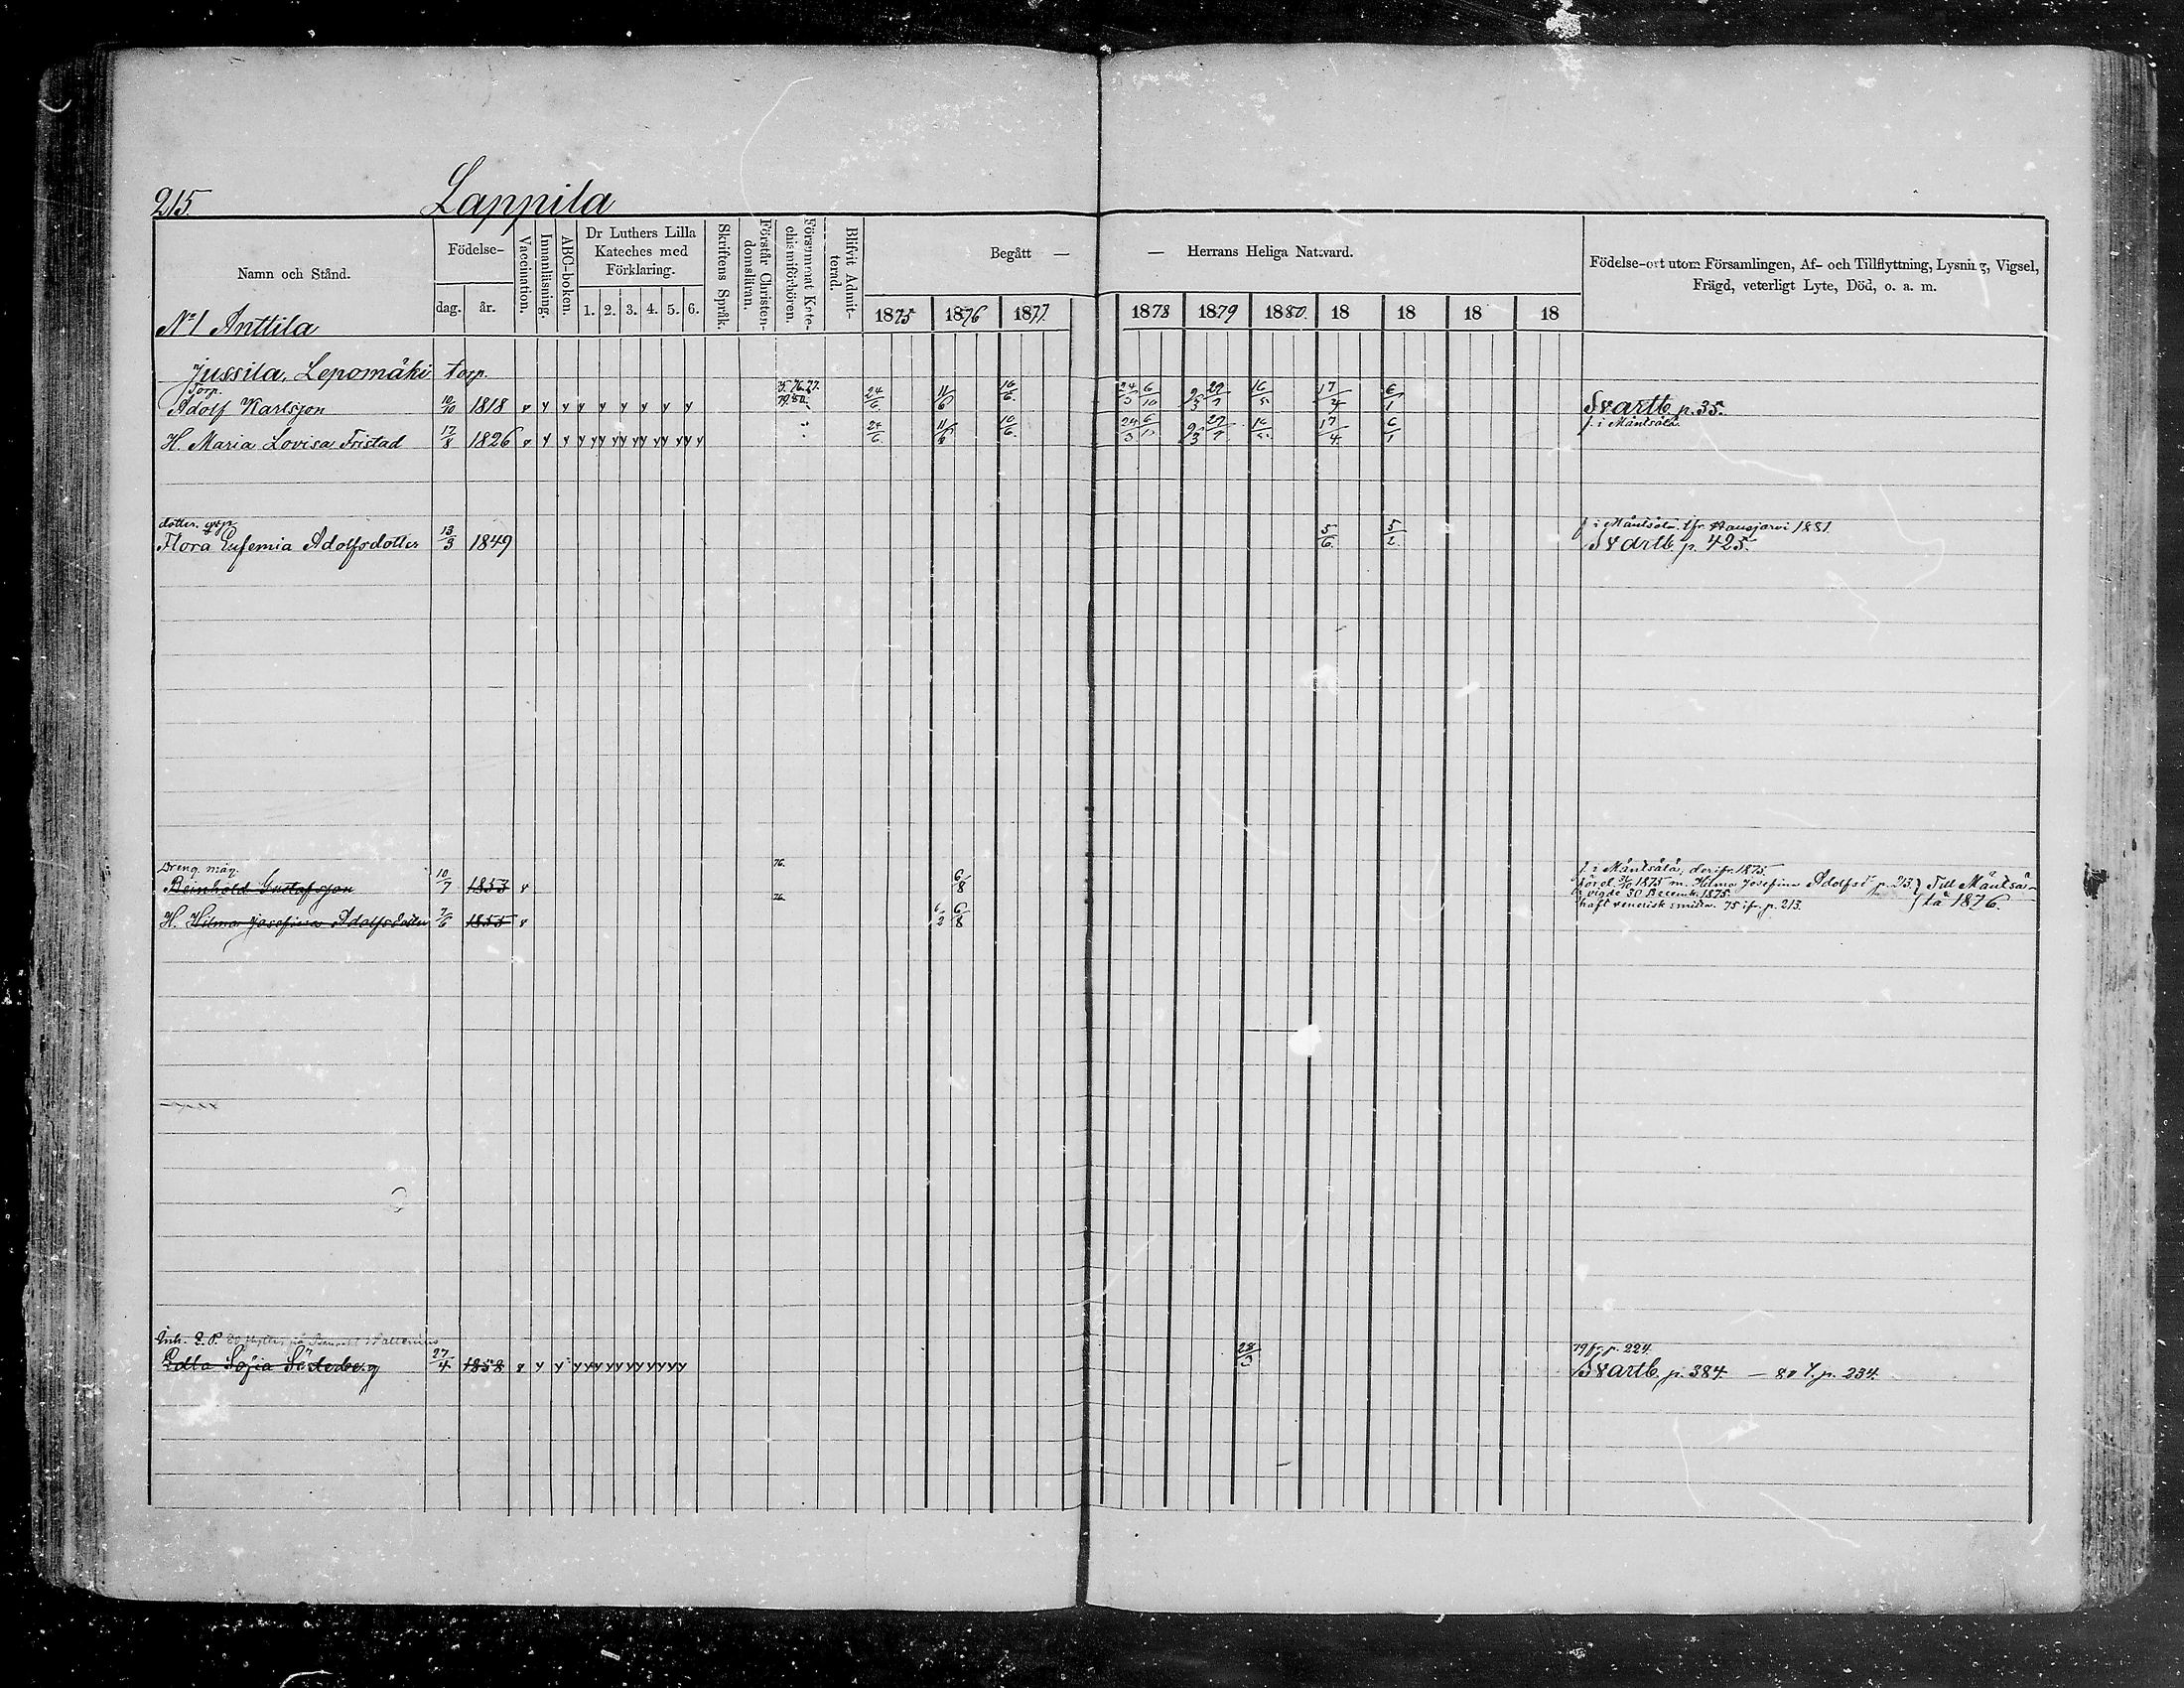 215. Lappila
Namn och Stånd.
Födelse-
dag. år.
Vaccination.
Innanläsning.
ABC-boken.
Dr Luthers Lilla
Kateches med
Förklaring.
1. 2. 3. 4. 5. 6.
Skriftens Språk.
Förstår Christen-
domsläran.
Försummat Kate-
chismiförhören.
Blifvit Admit-
terad.
Begått —
— Herrans Heliga Nattvard.
1875 1876 1877 1878 1879 1880. 18 18 18 18
Födelse-ort utom Församlingen, Af- och Tillflyttning, Lysning, Vigsel,
Frägd, veterligt Lyte, Död, o. a. m.
No 1 Anttila
Jussila, Lepomäki torp.
Torp.
Adolf Karlsson 10/10 1818 v y y y y y y y y 75. 76. 77. 79. 80. 24/6 11/6 16/6. 24/3 6/10 29/7 16/5 17/4 6/1 Svartb p. 35.
H. Maria Lovisa Fristad 17/8 1826 v y y yy yy yy yy yy yy 24/6. 11/6 16/6. 24/3 29/7 16/5 17/4 6/1 f. i Mäntsälä.
dotter.
Flora Eufemia Adolfsdotter 13/3 1849 5/6. 5/2. f i Mäntsälä. tfr. Hausjärvi 1881.
Svartb. p. 425.
Dreng. måg.
Reinhold Gustafsson 10/7 1853 v 76. 6/8 f. i Mäntsälä, derifr. 1875.
förel. 31/10 1875 m. Hilma Josefina Adolfsd p. 213. Till Mäntsä-
vigde 30 Decemb. 1875.
H. Hilma Josefina Adolfsdotter 7/6 1855 v 76. 6/2 6/8 haft venerisk smitta. 75 ifr. p. 213. lä 1876.
Inh. E. P.
Edla Sofia Söderberg 27/4 1858 v y y yyyyyyyyyyy 28/3 79 fr. p. 224.
Svartb. p. 384. — 80 t. p. 234.